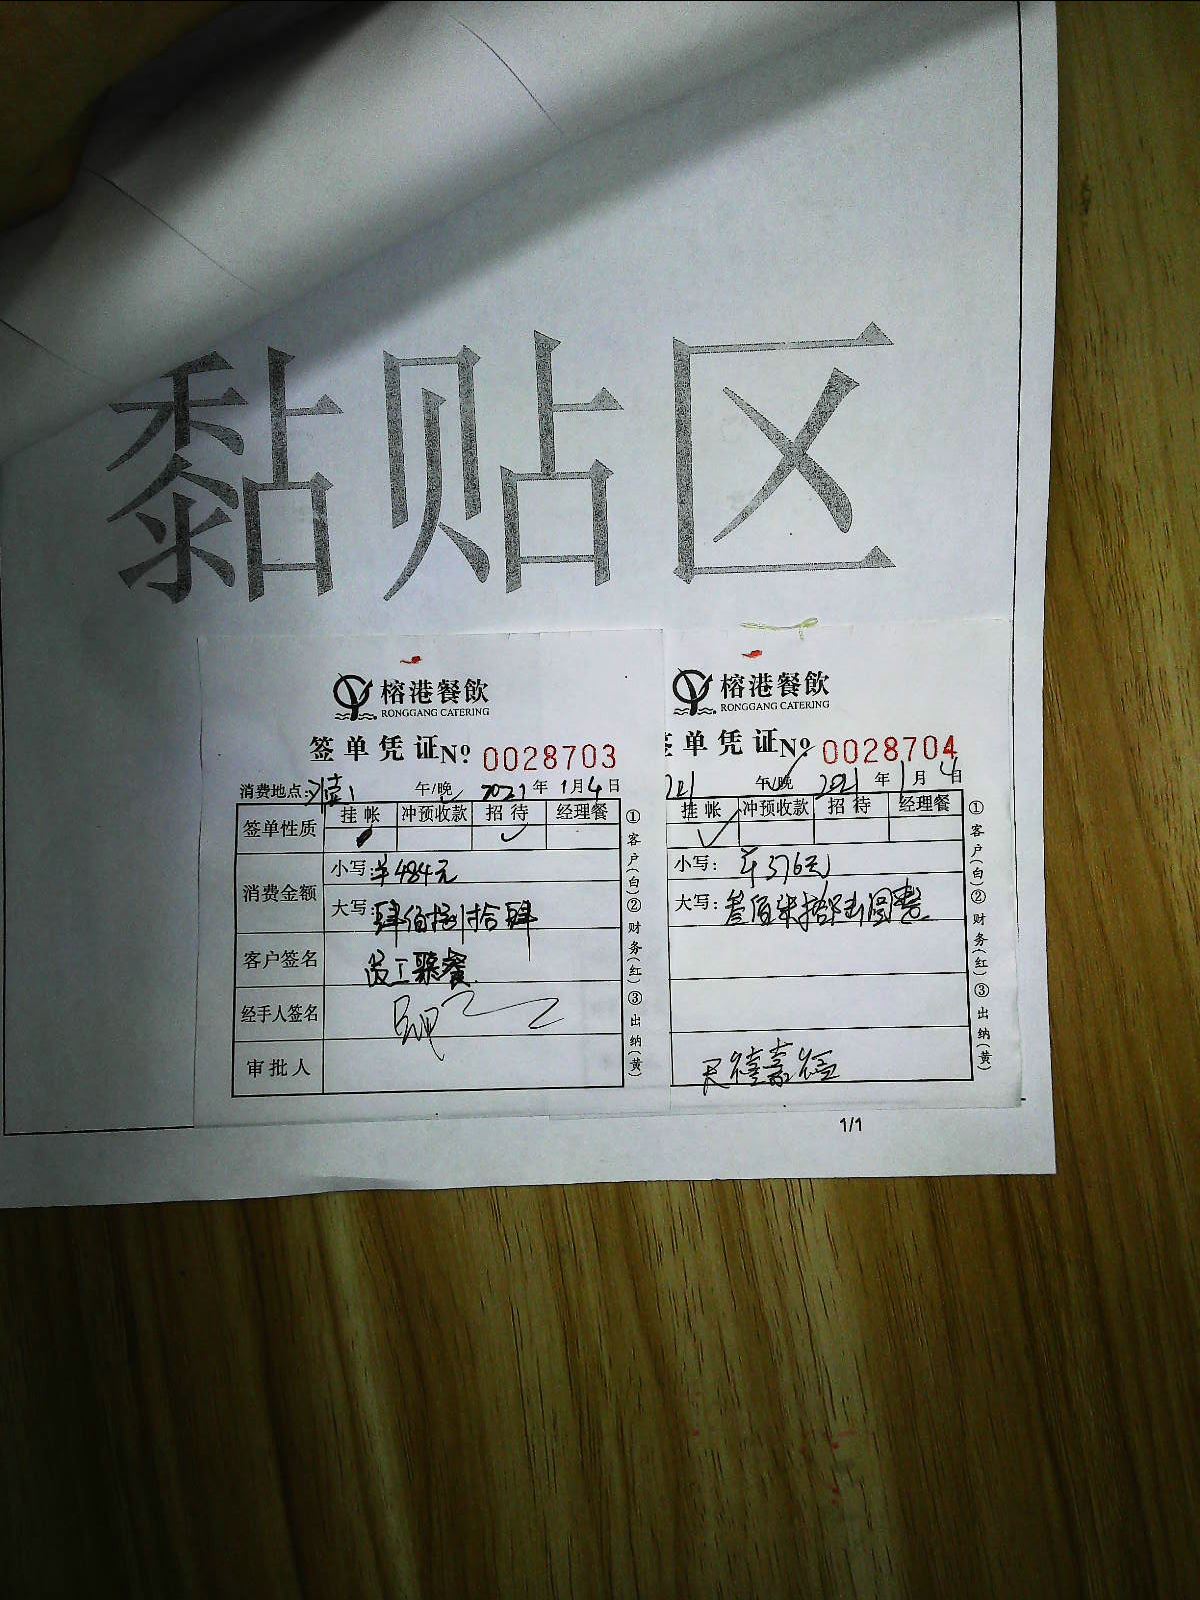 黏贴区
榕港餐飲
RONGGANG CATERING
签单凭证 № 0028703
消费地点: 午/晚 2021年1月4日
签单性质 挂帐 冲预收款 招待 经理餐
消费金额
小写:¥484元
大写:肆佰捌拾肆
客户签名 员工聚餐
经手人签名
审批人
①客户(白)②财务(红)③出纳(黄)
榕港餐飲
RONGGANG CATERING
签单凭证 № 0028704
午/晚 2021年1月4日
挂帐 冲预收款 招待 经理餐
小写:¥376元
大写:叁佰柒拾陆圆整
①客户(白)②财务(红)③出纳(黄)
1/1